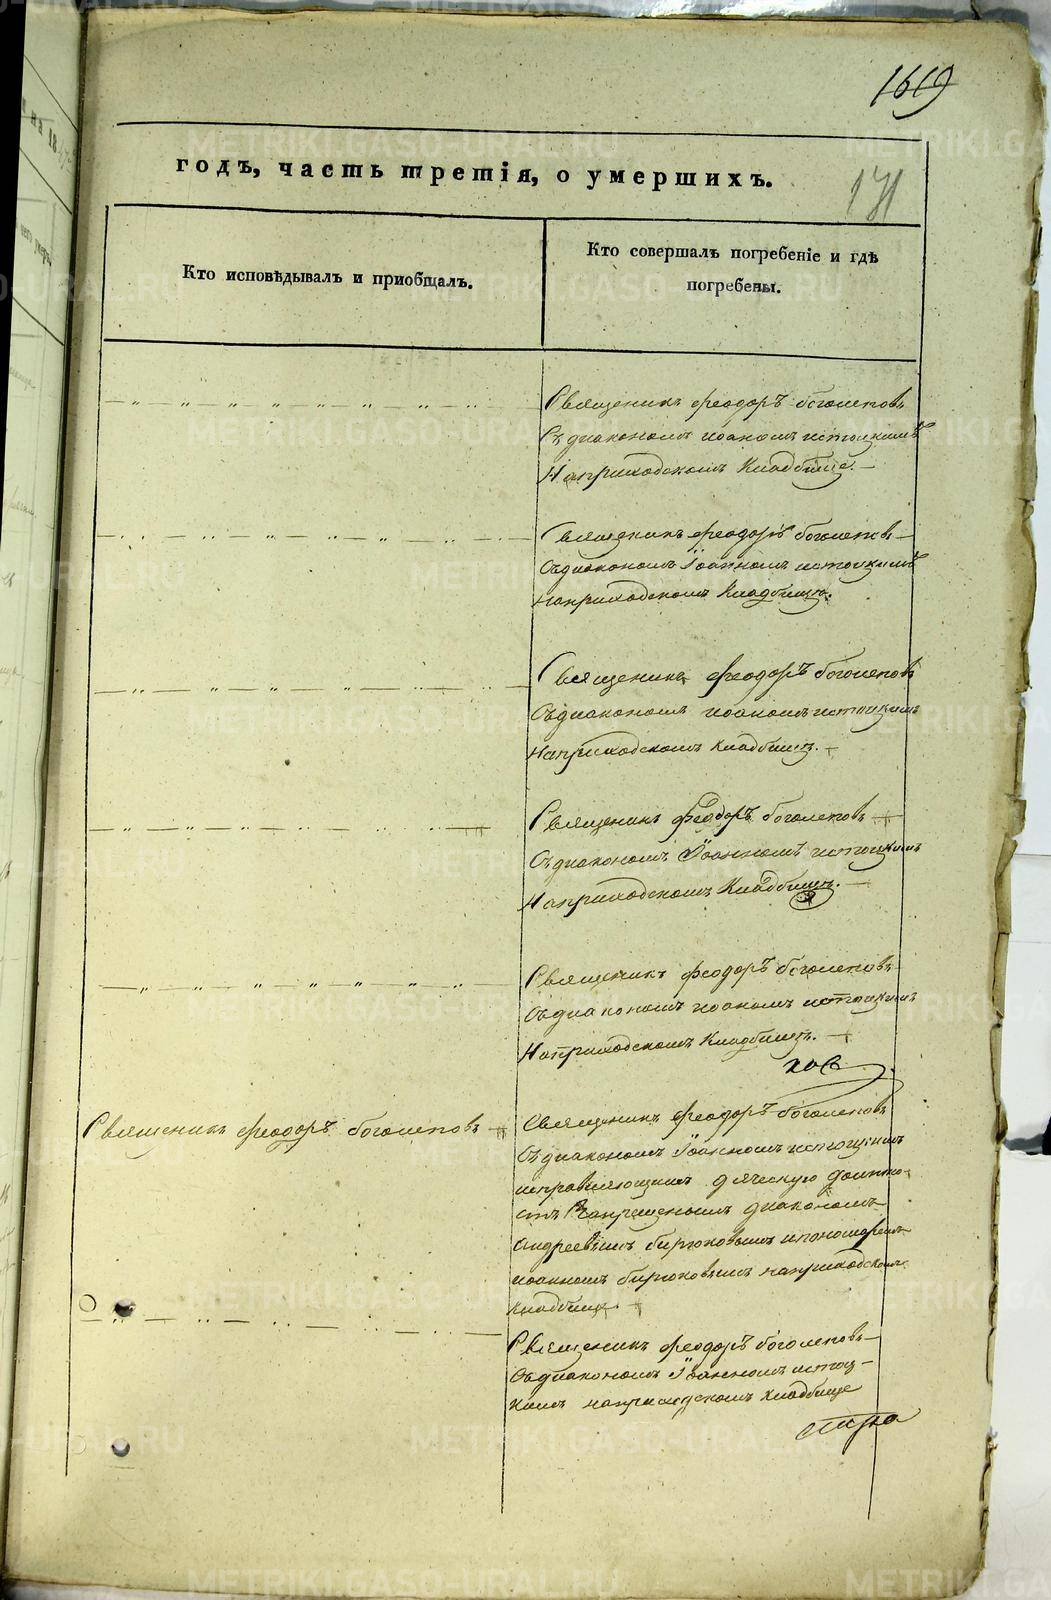 1619
годъ, часть третія, о умершихъ.
171
Кто исповѣдывалъ и приобщалъ.
Кто совершалъ погребеніе и гдѣ
погребены.
Священикъ феодоръ боголеповъ
Съ диакономъ иоаномъ истоцкимъ
На приходскомъ Кладбище.
Священикъ феодоръ боголеповъ
Съ диакономъ Іоанномъ истоцкимъ
на приходскомъ Кладбищъ.
Священикъ феодоръ боголеповъ
Съ диакономъ иоаномъ истоцкимъ
На приходскомъ Кладбищъ.
Священикъ феодоръ боголеповъ
Съ диакономъ Іоанномъ истоцкимъ
На приходскомъ Кладбищъ.
Священикъ феодоръ боголеповъ
Съ диакономъ иоаномъ истоцкимъ
На приходскомъ Кладбищъ.
ховъ
Священикъ феодоръ боголеповъ
Священикъ феодоръ боголеповъ
Съ диакономъ Іоанномъ истоцкимъ
исправляющимъ дяческую должно-
сть Запрещенымъ диакономъ
Андреевымъ бирюковымъ и пономаремъ
иоанномъ бирюковымъ на приходскомъ
кладбище
Священикъ феодоръ боголеповъ
Съ диакономъ Іоанномъ истоц-
кимъ на приходскомъ кладбище
METRIKI.GASO-URAL.RU